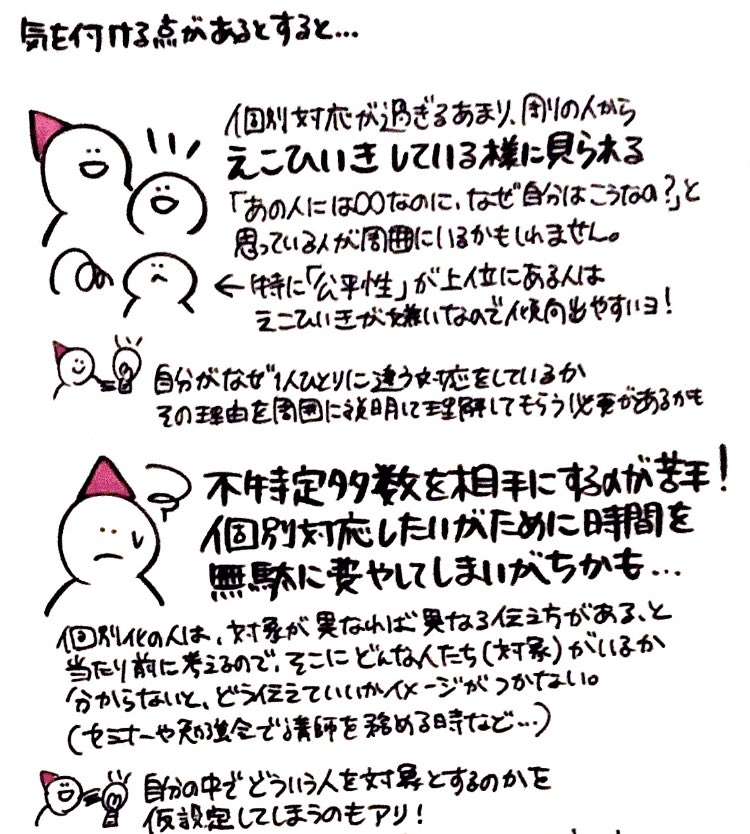 気を付ける点があるとすると…
個別対応が過ぎるあまり、周りの人から
えこひいきしている様に見られる
「あの人には〇〇なのに、なぜ自分はこうなの?」と
思っている人が周囲にいるかもしれません。
←特に「公平性」が上位にある人は
えこひいきが嫌いなので傾向出やすいヨ!
自分がなぜ1人ひとりに違う対応をしているか
その理由を周囲に説明して理解してもらう必要があるかも
不特定多数を相手にするのが苦手!
個別対応したいがために時間を
無駄に費やしてしまいがちかも…
個別化の人は、対象が異なれば異なる伝え方がある、と
当たり前に考えるので、そこにどんな人たち(対象)がいるか
分からないと、どう伝えていいかイメージがつかない。
(セミナーや勉強会で講師を務める時など…)
自分の中でどういう人を対象とするのかを
仮設定してしまうのもアリ!